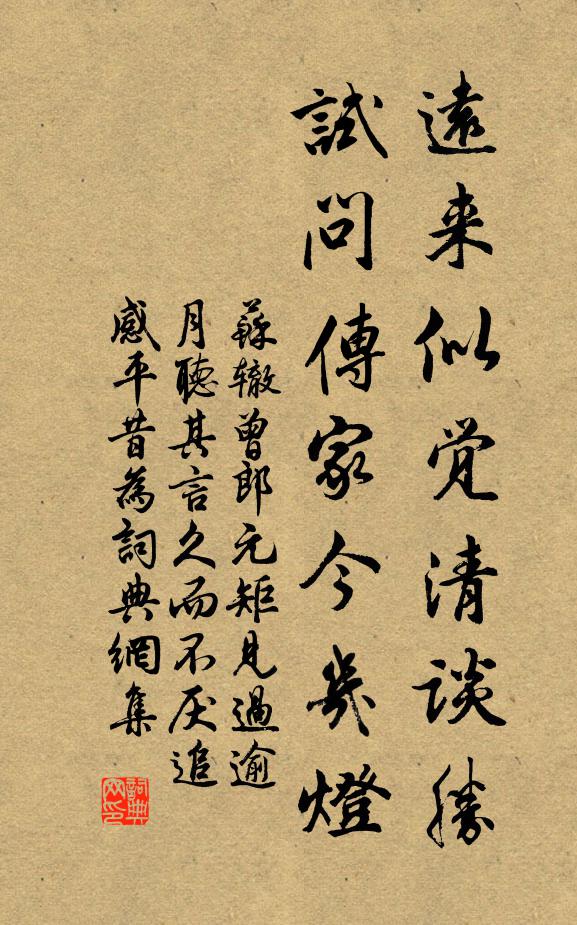 遠来似觉清談勝
試問傳家今幾燈
蘇辙曾郎元矩見過逾
月聽其言久而不厌追
感平昔為詞典網集
詞典网印